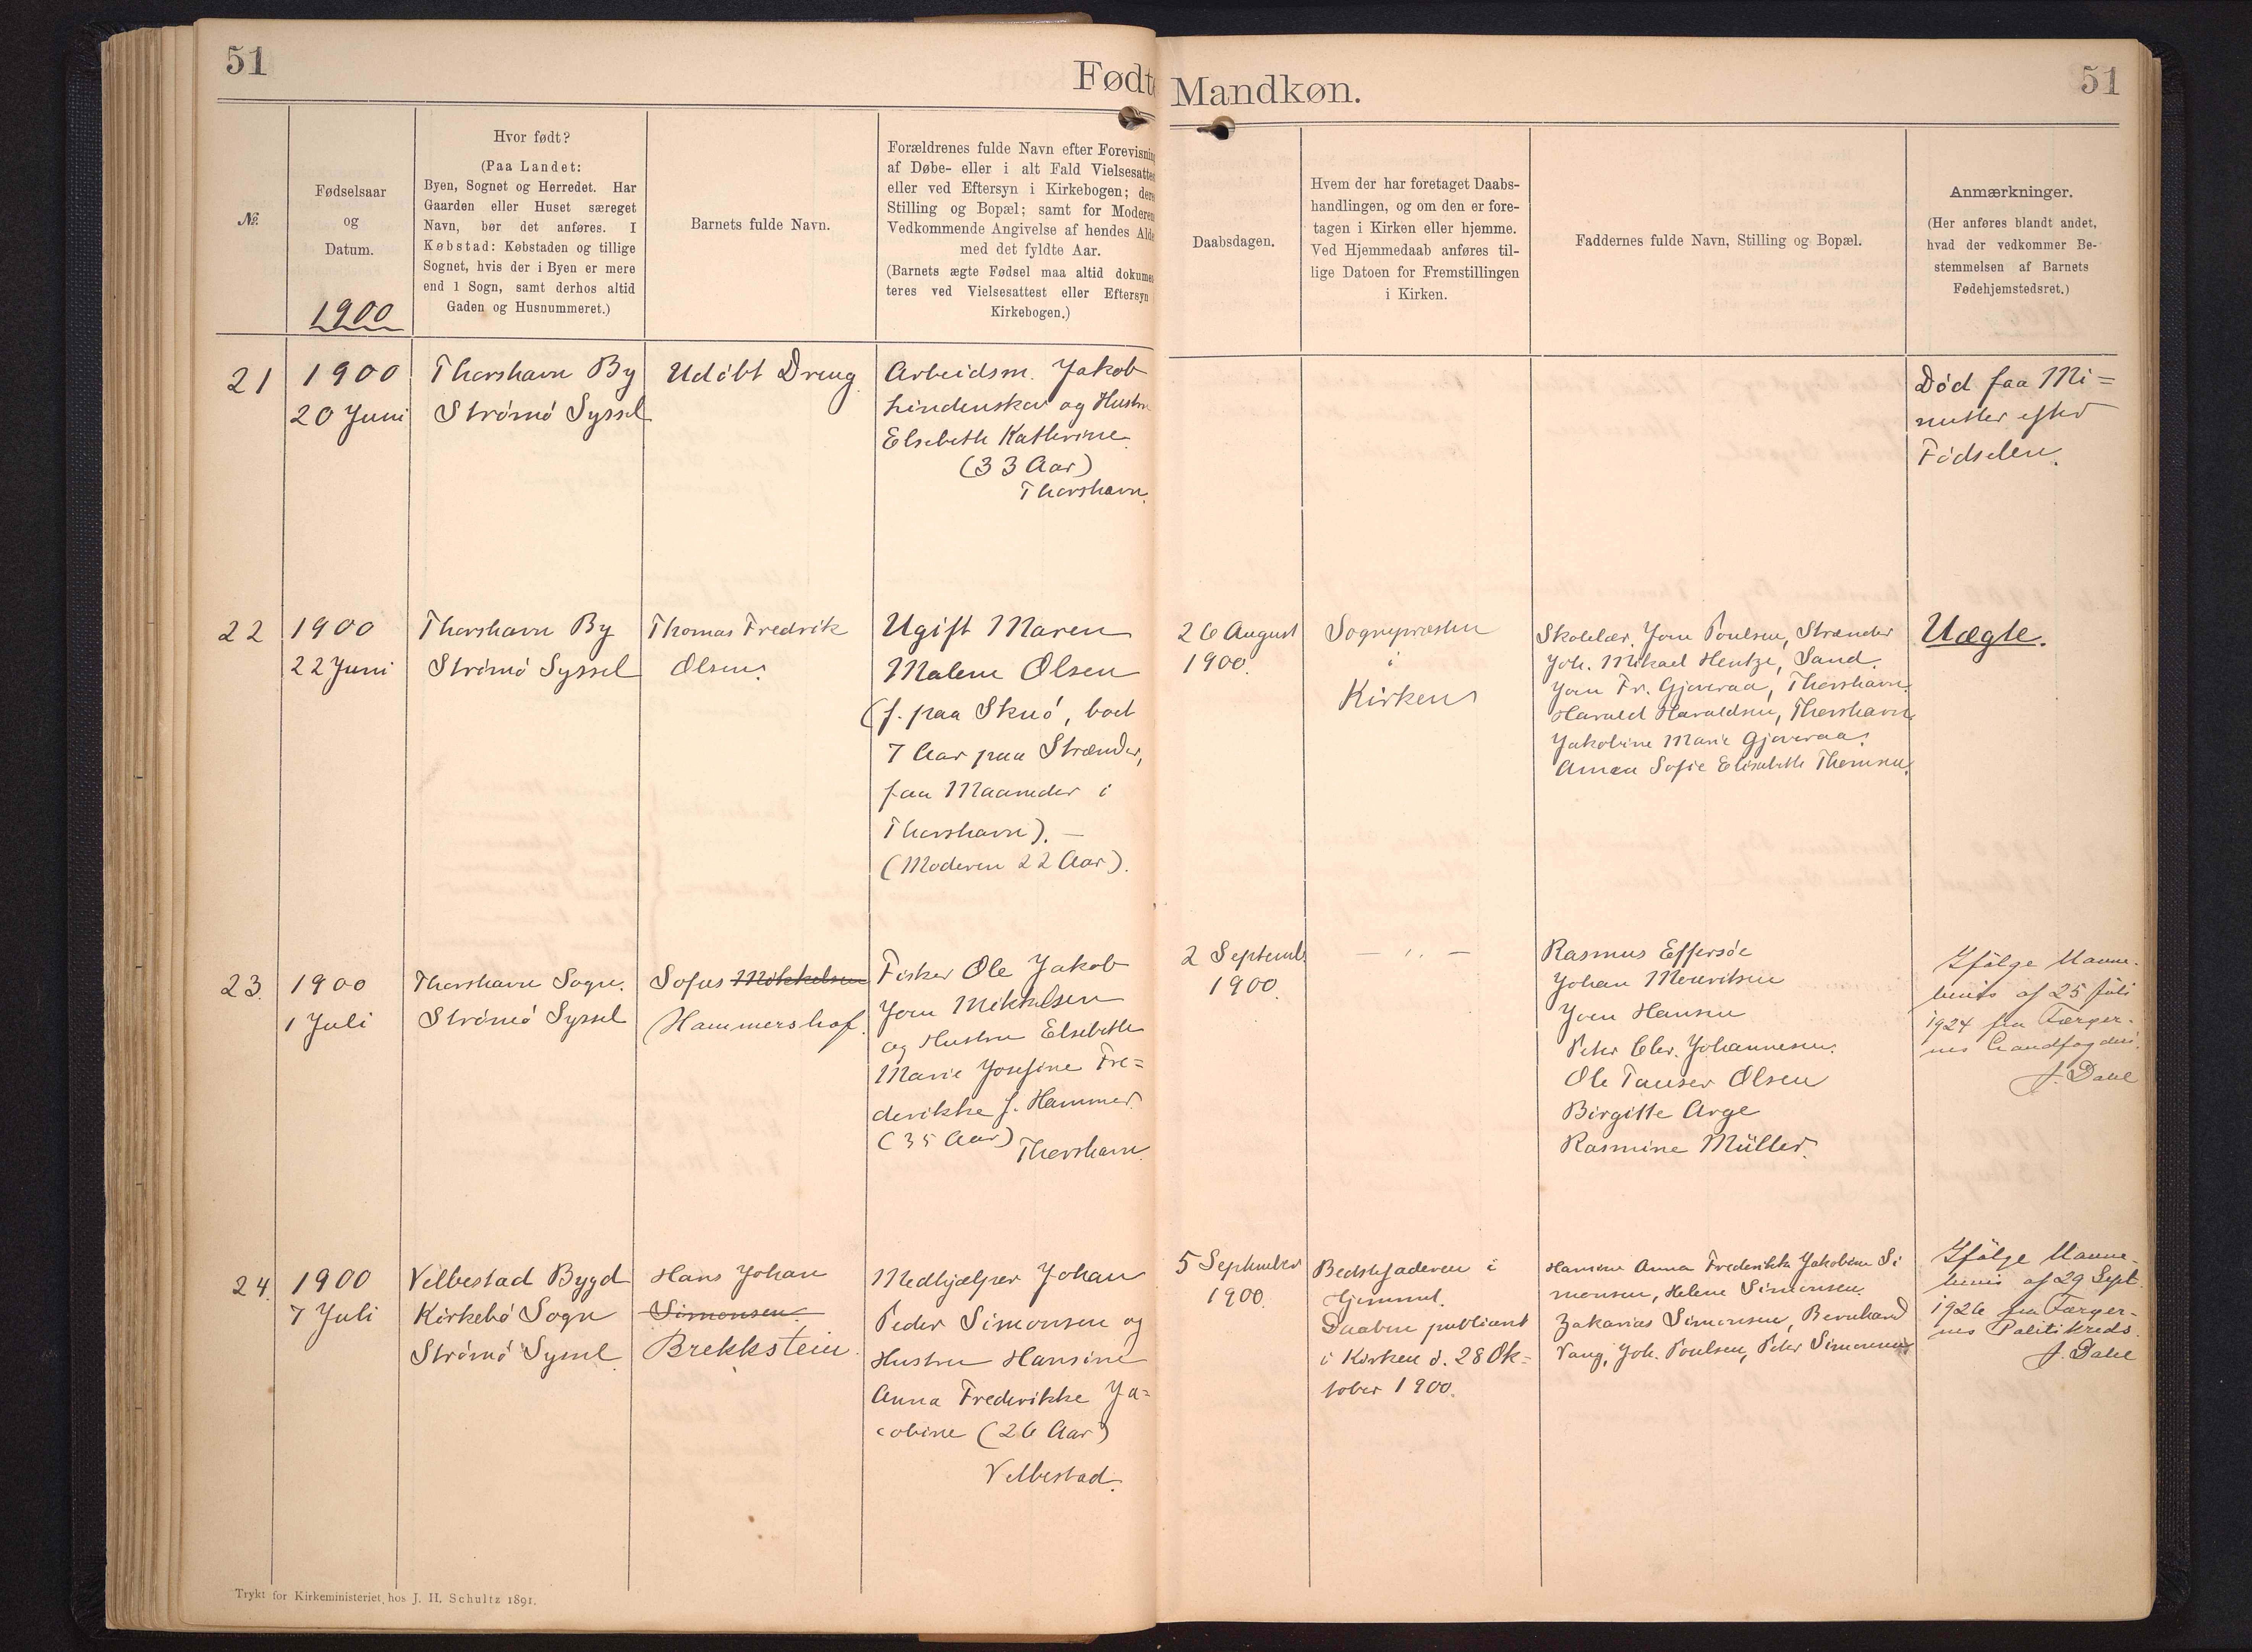 51
Fødte
Mandkøn.
51
№
Fødselsaar
og
Datum.
1900
Hvor født?
(Paa Landet:
Byen, Sognet og Herredet. Har
Gaarden eller Huset særeget
Navn, bør det anføres. I
Købstad: Købstaden og tillige
Sognet, hvis der i Byen er mere
end 1 Sogn, samt derhos altid
Gaden og Husnummeret.)
Barnets fulde Navn.
Forældrenes fulde Navn efter Forevisning
af Døbe- eller i alt Fald Vielsesattest
eller ved Eftersyn i Kirkebogen; deres
Stilling og Bopæl; samt for Moderens
Vedkommende Angivelse af hendes Alder
med det fyldte Aar.
(Barnets ægte Fødsel maa altid dokumen-
teres ved Vielsesattest eller Eftersyn i
Kirkebogen.)
Daabsdagen.
Hvem der har foretaget Daabs-
handlingen, og om den er fore-
tagen i Kirken eller hjemme.
Ved Hjemmedaab anføres til-
lige Datoen for Fremstillingen
i Kirken.
Faddernes fulde Navn, Stilling og Bopæl.
Anmærkninger.
(Her anføres blandt andet,
hvad der vedkommer Be-
stemmelsen af Barnets
Fødehjemstedsret.)
21
1900
20 Juni
Thorshavn By
Strømø Syssel
Udöbt Dreng
Arbeidsm. Jakob
Lindenskov og Hustru
Elsebeth Kathrine
(33 Aar)
Thorshavn.
Död faa Mi=
nutter efter
Födselen.
22
1900
22 Juni
Thorshavn By
Strømø Syssel
Thomas Fredrik
Olsen.
Ugift Maren
Malene Olsen
(f. paa Skuö, boet
7 Aar paa Strænder,
faa Maaneder i
Thorshavn). —
(Moderen 22 Aar).
26 August
1900.
Sognepræsten
i
Kirken
Skolelær. Joen Poulsen, Strænder
Joh. Mikael Hentze, Sand.
Joen Fr. Gjoveraa, Thorshavn.
Harald Haraldsen, Thorshavn.
Jakobine Marie Gjoveraa.
Anna Sofie Elisabeth Thomsen.
Uægte.
23.
1900
1 Juli
Thorshavn Sogn.
Strømø Syssel
Sofus Mikkelsen
Hammershof.
Fisker Ole Jakob
Joen Mikkelsen
og Hustru Elsebeth
Marie Josefine Fre=
derikke f. Hammer
(35 Aar)
Thorshavn.
2 Septemb
1900.
— ,, —
Rasmus Effersöe
Johan Mouritsen
Joen Hansen
Peter Chr. Johannesen.
Ole Tausen Olsen
Birgitte Arge
Rasmine Müller.
Ifölge Navne-
bevis af 25 Juli
1924 fra Færger-
nes Landfogderi.
J. Dahl
24.
1900
7 Juli
Velbestad Bygd
Kirkebö Sogn
Strømø Syssel.
Hans Johan
Simonsen.
Brekkstein.
Medhjælper Johan
Peder Simonsen og
Hustru Hansine
Anna Frederikke Ja=
cobine (26 Aar)
Velbestad.
5 September
1900.
Bedstefaderen i
Hjemmet.
Daaben publiceret
i Kirken d. 28 Ok=
tober 1900.
Hansine Anna Frederikke Jakobine Si
monsen, Helene Simonsen,
Zakarias Simonsen, Bernhard
Vang, Joh. Poulsen, Peter Simonsen
Ifölge Navne-
bevis af 29 Sept.
1926 fra Færger-
nes Politikreds.
J. Dahl
Trykt for Kirkeministeriet hos J. H. Schultz 1891.